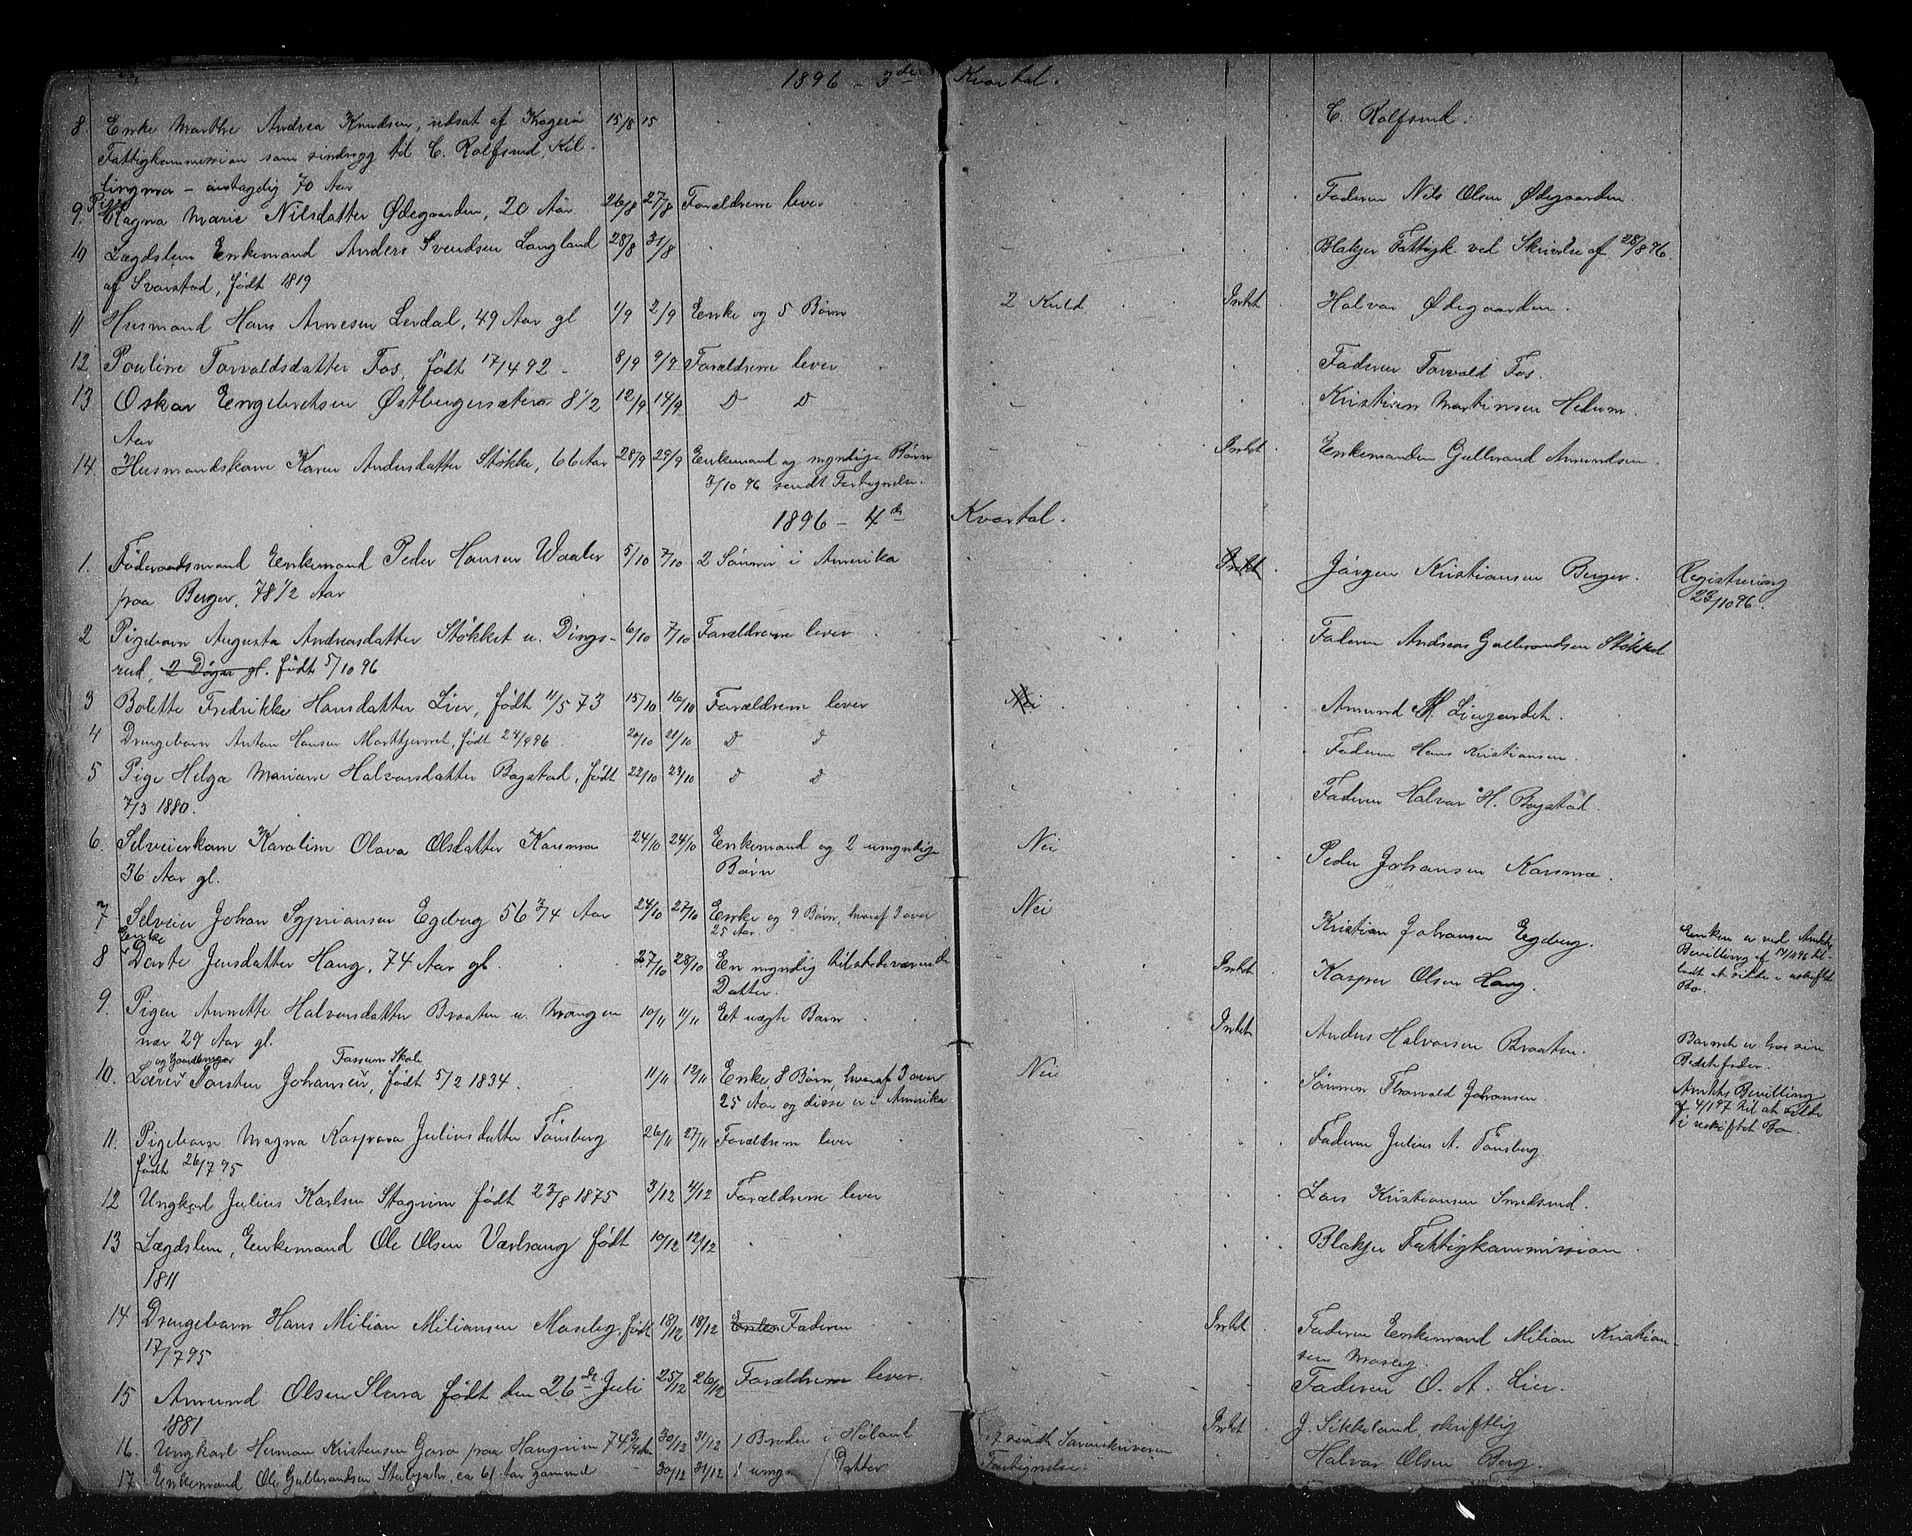 1896 – 3die Kvartal.
8. Enke Marthe Andrea Knudsen, udsat af Kragerø 15/8 15 C. Rolfsrud.
Fattigkommission som sindssyg til C. Rolfsrud, Kil-
lingmo – 70 Aar
9. Pige Ragna Marie Nilsdatter Ødegaarden, 20 Aar 26/8 27/8 Forældrene lever Faderen Nils Olsen Ødegaarden
10 Lægdslem Enkemand Anders Svendsen Langland 28/8 31/8 Blakjer Fattigk. ved Skrivelse af 28/8 96.
af Svarstad, født 1819
11 Husmand Hans Arnesen Lerdal, 49 Aar gl 1/9 2/9 Enke og 5 Børn 2 Kuld Intet Halvor Ødegaarden.
12 Pauline Torvaldsdatter Fos, født 17/4 92 – 8/9 9/9 Forældrene lever Faderen Torvald Fos.
13 Oskar Engebretsen Østbergersæteren 8 1/2 12/9 14/9 D D Kristian Martinsen Hedum.
Aar
14. Husmandskone Karen Andersdatter Støkke, 66 Aar 28/9 29/9 Enkemand og myndige Børn Intet Enkemanden Gulbrand Amundsen.
3/10 96 sendt Fortegnelse.
1896 – 4de Kvartal.
1. Føderaadsmand Enkemand Peder Hansen Waaler 5/10 7/10 2 Sønner i Amerika Intet Jørgen Kristiansen Berger. Registrering
paa Berger, 78 1/2 Aar 23/10 96.
2 Pigebarn Augusta Andreasdatter Støkket u. Dings- 6/10 7/10 Forældrene lever Faderen Andreas Gulbrandsen Støkket
rud, 2 Døgn gl. født 5/10 96
3 Bolette Fredrikke Hansdatter Lier, født 11/5 73 15/10 16/10 Forældrene lever Nei Amund M. Liengardet.
4 Drengebarn Anton Hansen Morttjernet, født 24/9 96 20/10 21/10 D D Faderen Hans Kristiansen.
5 Pige Helga Mariane Halvorsdatter Bogstad, født 22/10 23/10 D D Faderen Halvor H. Bogstad.
7/3 1880.
6. Selveierkone Karoline Olava Olsdatter Korsmo 24/10 24/10 Enkemand og 2 umyndige Nei Peder Johansen Korsmo.
36 Aar gl. Børn
7 Selveier Johan Syprianson Egeberg 56 3/4 Aar 24/10 27/10 Enke og 9 Børn, hvoraf 3 over Nei Kristian Johansen Egeberg. Enken er ved Amtets
25 Aar. Bevilling af 14/4 96 til-
8 Enke Dorte Jensdatter Haug, 74 Aar gl. 27/10 28/10 En myndig tilstedeværende Intet Kasper Olsen Haug. ladt at sidde i uskiftet
Datter. Bo.
9. Pigen Annette Halvorsdatter Braaten u. Mangen 10/11 11/11 Et uægte Barn Intet Anders Halvorsen Braaten. Barnet er hos sin
nær 29 Aar gl. Bedstefader.
10. Lærer og Gaardbruger Torsten Johansen, Fosserum Skole, født 5/2 1834. 11/11 12/11 Enke, 8 Børn, hvoraf 3 over Nei Sønnen Thorvald Johansen. Amtets Bevilling
25 Aar og disse er i Amerika af 4/1 97 til at sidde
i uskiftet Bo.
11. Pigebarn Magna Kaspara Juliusdatter Tønsberg 26/11 27/11 Forældrene lever Faderen Julius A. Tønsberg
født 26/7 95
12 Ungkarl Julius Karlsen Stagrim født 23/8 1875 3/12 4/12 Forældrene lever Lars Kristiansen Smedsrud.
13 Lægdslem, Enkemand Ole Olsen Værhaug født 10/12 12/12 Blakjer Fattigkommission
1811
14 Drengebarn Hans Milian Miliansen Maseleg, født 18/12 18/12 Faderen Intet Faderen Enkemand Milian Kristian-
17/7 95 sen Maseleg.
15 Amund Olsen Slora født den 26de Juli 25/12 26/12 Forældrene lever. Faderen O. A. Lier.
1881
16. Ungkarl Herman Kristensen Gara paa Haugrim 74 3/4 Aar 30/12 31/12 1 Broder i Høland sendt Sorenskriveren Intet J. Sikkeland, skriftlig
17 Enkemand Ole Gulbrandsen ca 61 Aar gammel 30/12 31/12 1 umg. Datter Fortegnelse. Halvor Olsen Berg.